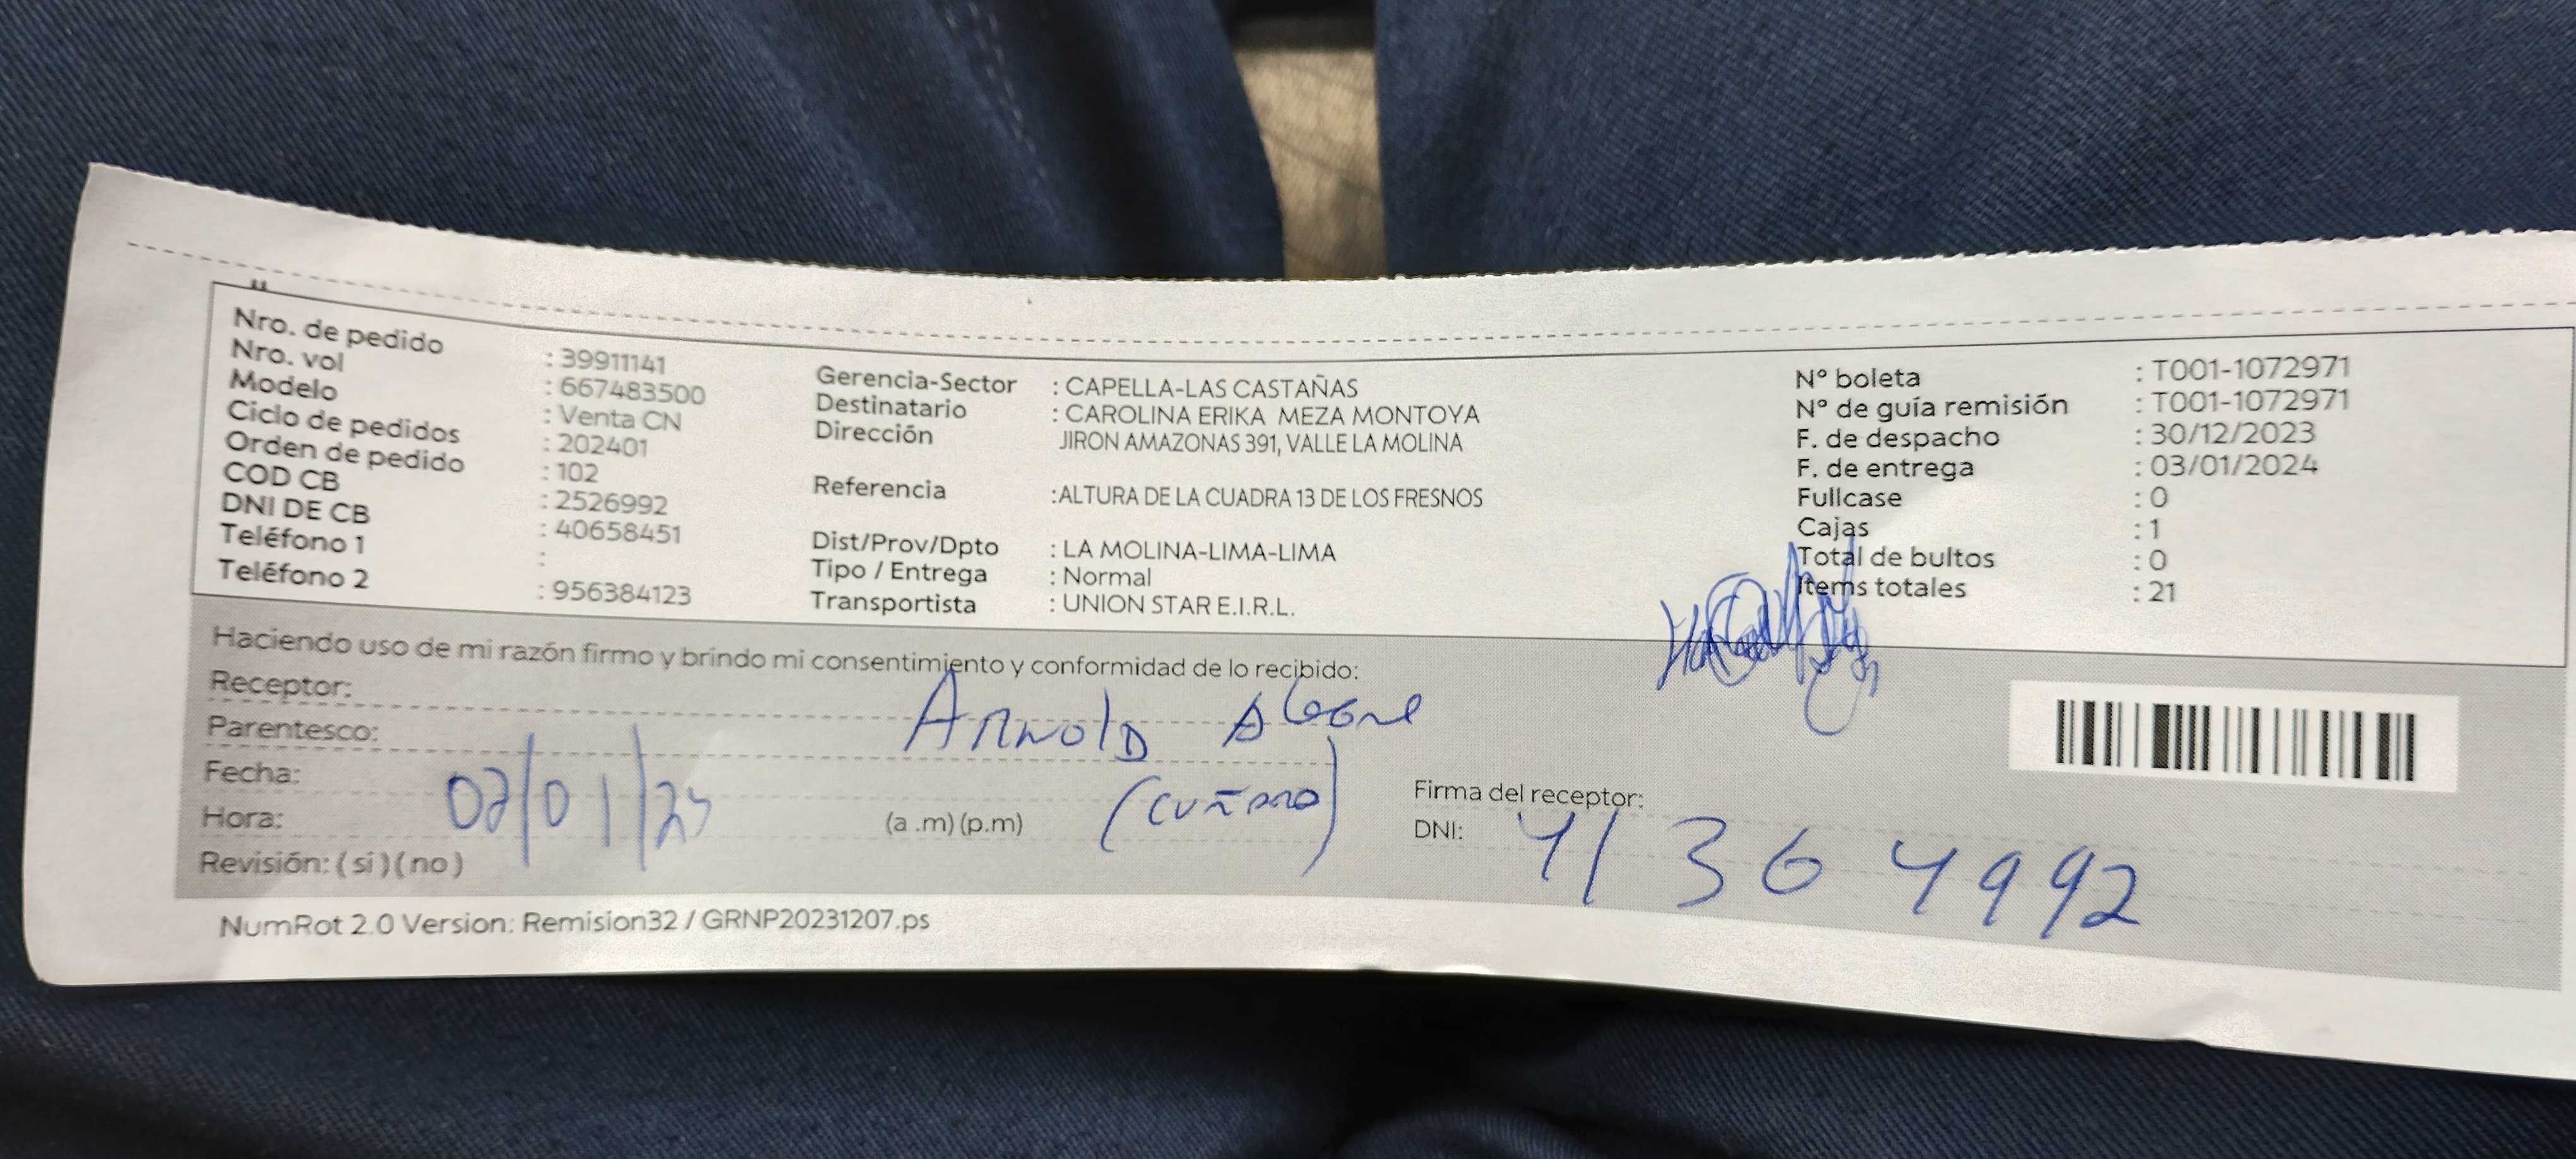 Nro. de pedido : 39911141
Nro. vol : 667483500
Modelo : Venta CN
Ciclo de pedidos : 202401
Orden de pedido : 102
COD CB : 2526992
DNI DE CB : 40658451
Teléfono 1 :
Teléfono 2 : 956384123
Gerencia-Sector : CAPELLA-LAS CASTAÑAS
Destinatario : CAROLINA ERIKA MEZA MONTOYA
Dirección JIRON AMAZONAS 391, VALLE LA MOLINA
Referencia :ALTURA DE LA CUADRA 13 DE LOS FRESNOS
Dist/Prov/Dpto : LA MOLINA-LIMA-LIMA
Tipo / Entrega : Normal
Transportista : UNION STAR E.I.R.L.
N° boleta : T001-1072971
N° de guía remisión : T001-1072971
F. de despacho : 30/12/2023
F. de entrega : 03/01/2024
Fullcase : 0
Cajas : 1
Total de bultos : 0
Items totales : 21
Haciendo uso de mi razón firmo y brindo mi consentimiento y conformidad de lo recibido:
Receptor: Arnold
Parentesco: (cuñado)
Fecha:
Hora: (a .m) (p.m)
Revisión: ( si ) ( no )
Firma del receptor:
DNI: 41364992
NumRot 2.0 Version: Remision32 / GRNP20231207.ps